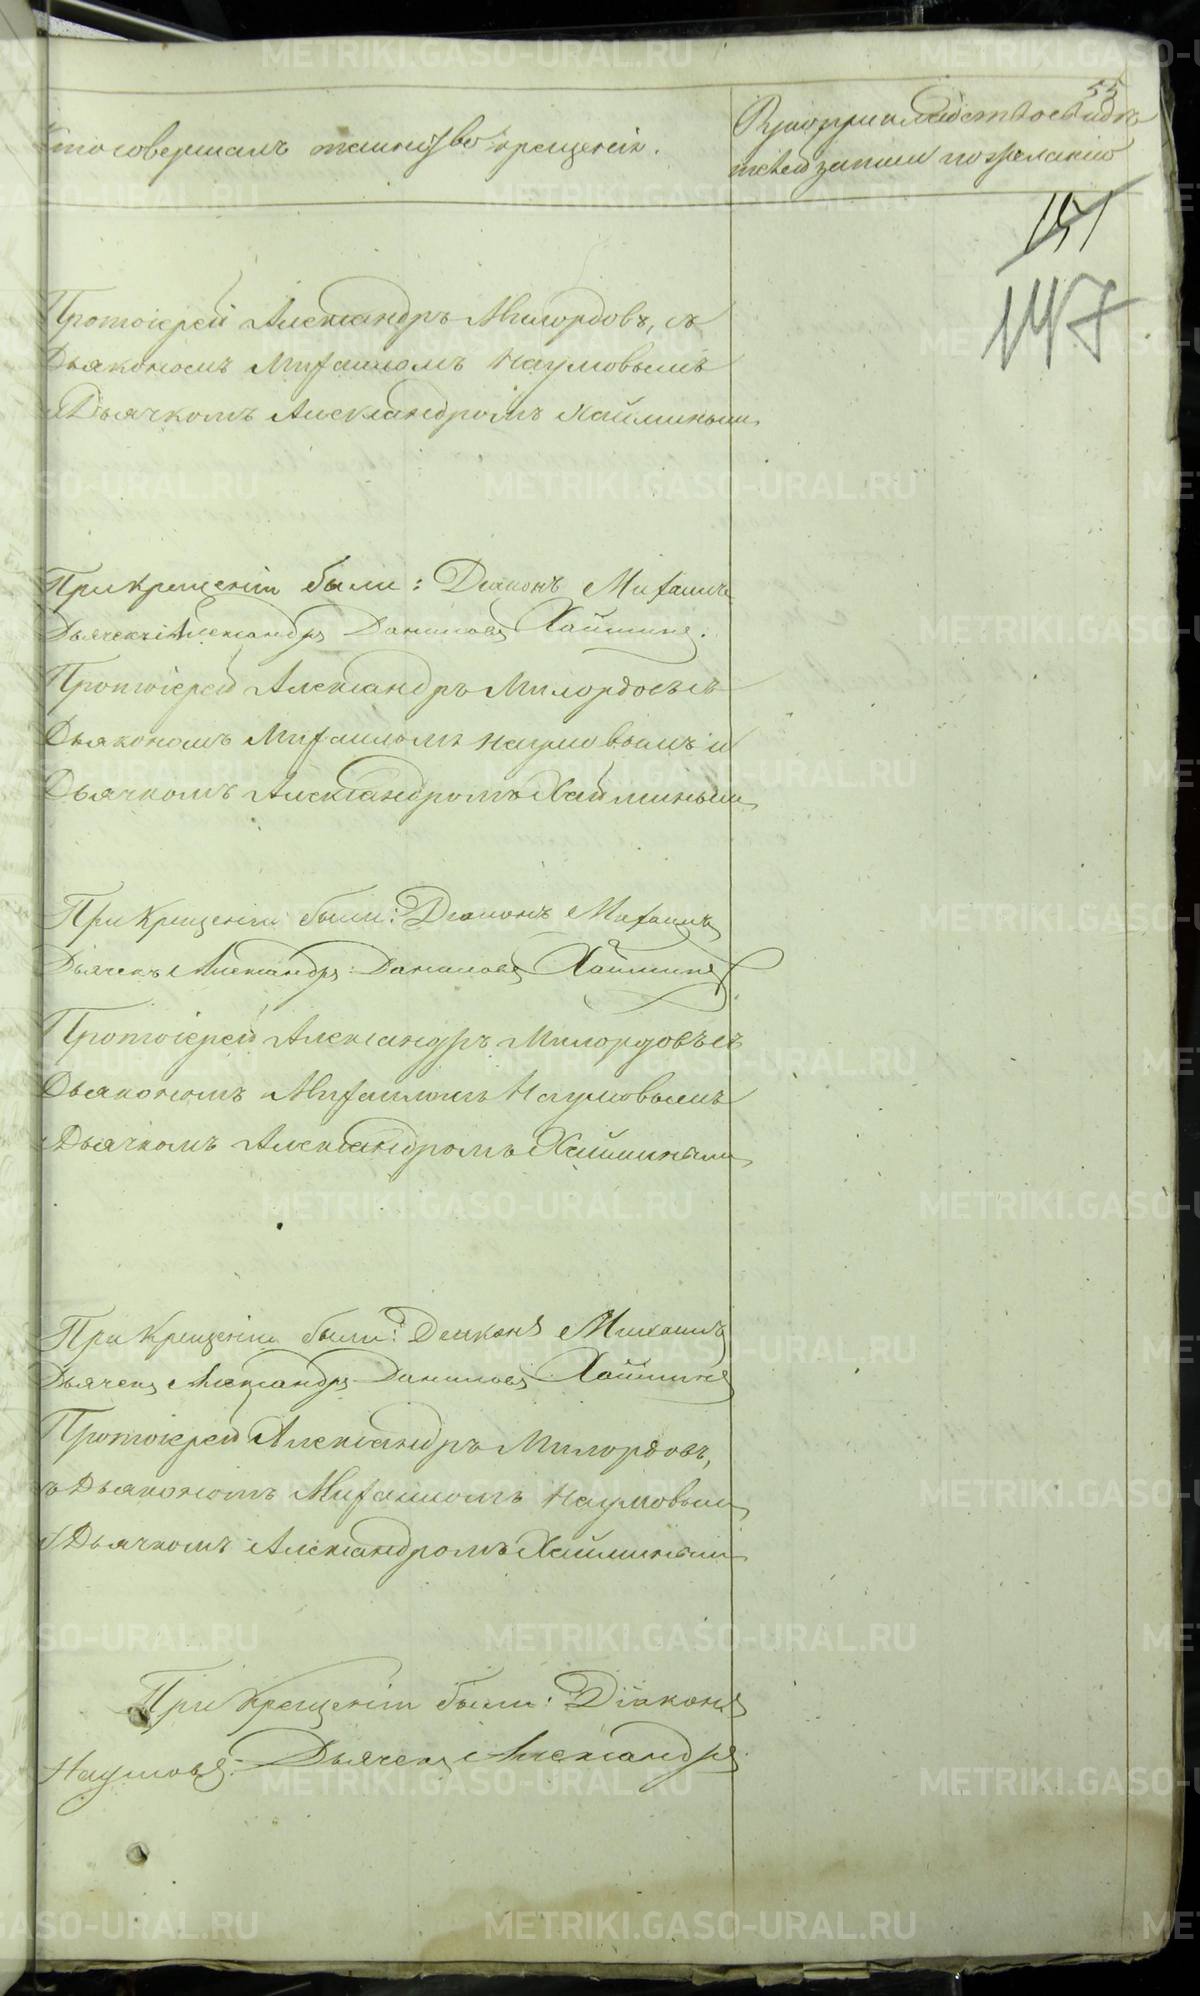 55
Кто совершалъ таинство крещенія.
Рукоприкладство свидѣ-
телей записи по желанію
151
147
Протоіерей Александръ Милордовъ, съ
Дьякономъ Михаиломъ Наумовымъ
Дьячкомъ Александромъ Хайминым
При крещеніи были: Діаконъ Михаилъ
Дьячекъ Александръ Даниловъ Хайминъ.
Протоіерей Александръ Милордовъ съ
Дьякономъ Михаиломъ Наумовымъ и
Дьячкомъ Александромъ Хайминым
При крещеніи были: Діаконъ Михаилъ
Дьячекъ Александръ Даниловъ Хайминъ
Протоіерей Александръ Милордовъ съ
Дьякономъ Михаиломъ Наумовымъ
Дьячкомъ Александромъ Хайминым
При Крещеніи были: Діаконъ Михаилъ
Дьячекъ Александръ Даниловъ Хайминъ
Протоіерей Александръ Милордовъ,
съ Дьякономъ Михаиломъ Наумовым
и Дьячкомъ Александромъ Хайминым
При крещеніи были: Діаконъ
Наумовъ. Дьячекъ Александръ.
METRIKI.GASO-URAL.RU